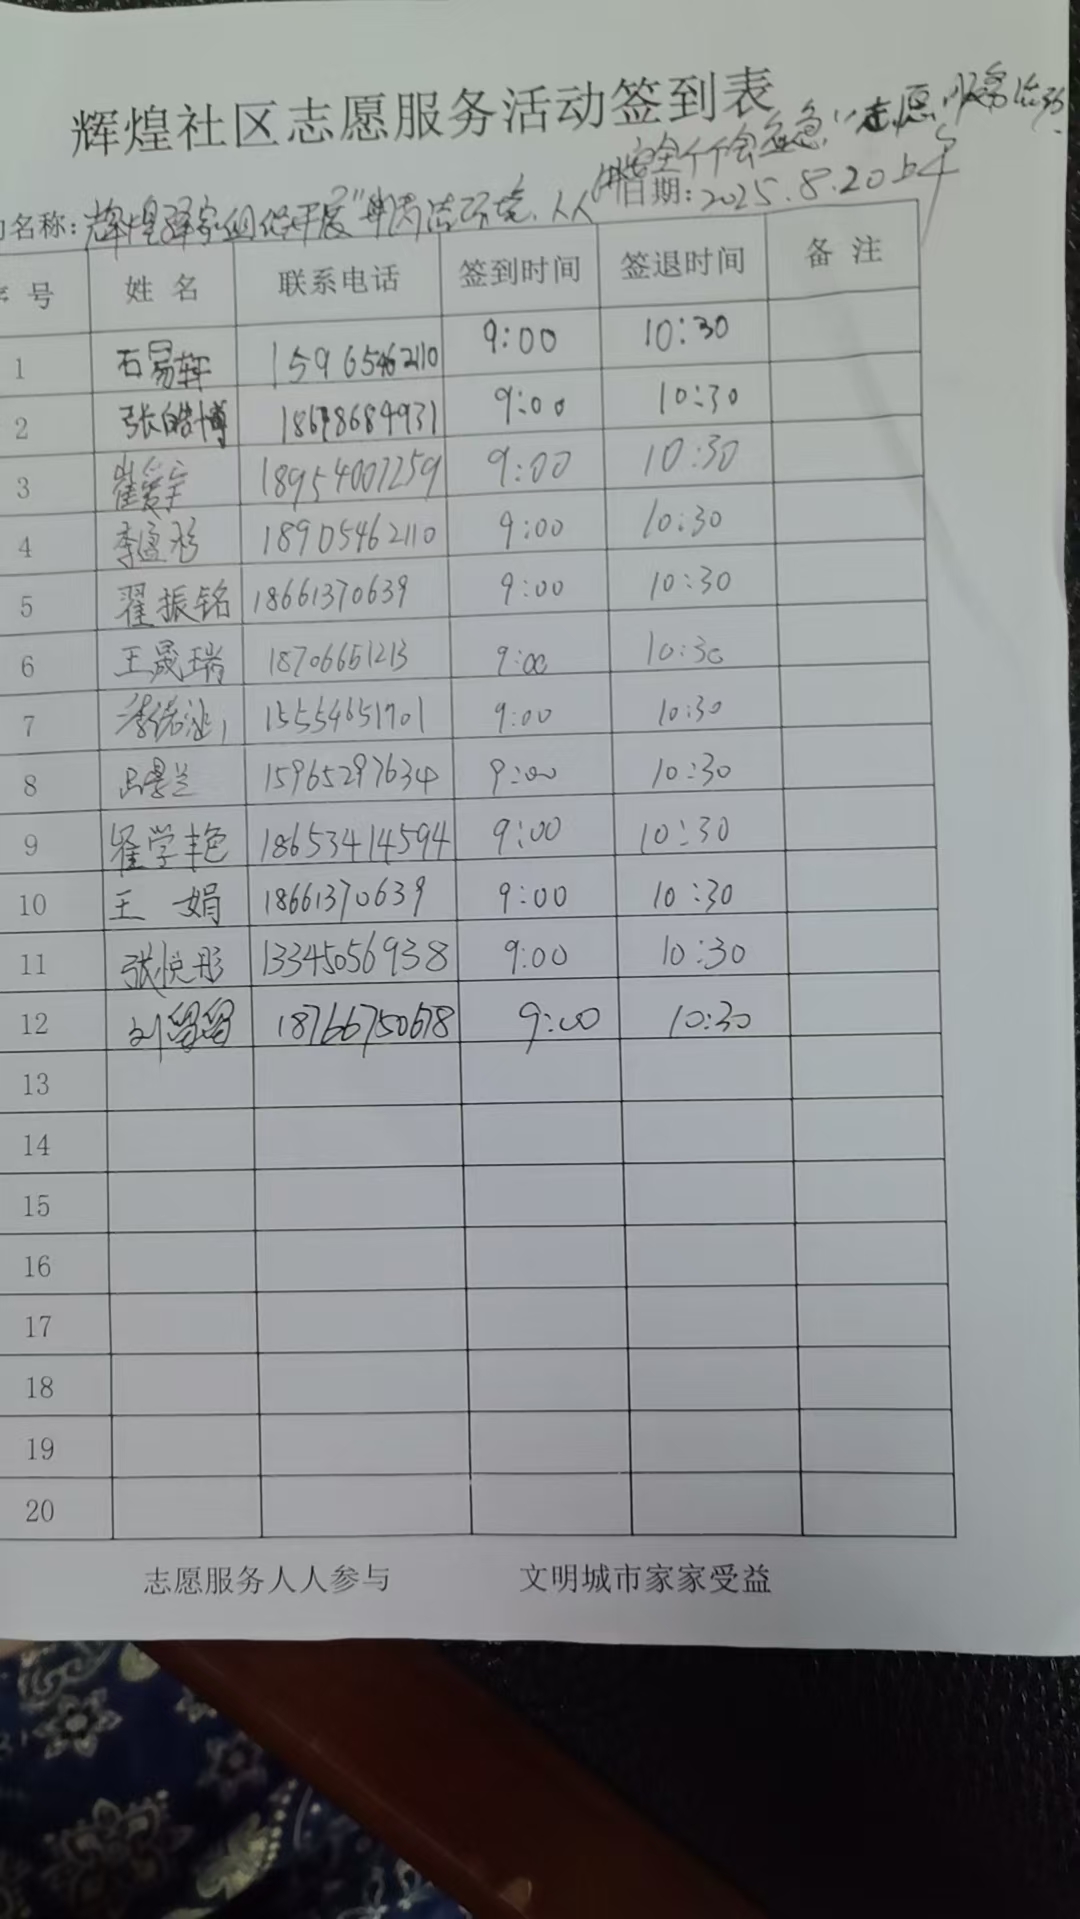 辉煌社区志愿服务活动签到表
安全个个会应急"志愿服务活动
名称：辉煌 组织开展" 人人 日期：2025.8.20上午
序号 姓名 联系电话 签到时间 签退时间 备注
1 石易轩 15965462110 9:00 10:30
2 张皓博 18678684931 9:00 10:30
3 崔 宇 18954007259 9:00 10:30
4 李孟杉 18905462110 9:00 10:30
5 翟振铭 18661370639 9:00 10:30
6 王晟瑞 18706651213 9:00 10:30
7 15554651701 9:00 10:30
8 15965297634 9:00 10:30
9 翟学艳 18653414594 9:00 10:30
10 王 娟 18661370639 9:00 10:30
11 张悦彤 13345056938 9:00 10:30
12 刘留留 18766750678 9:00 10:30
13
14
15
16
17
18
19
20
志愿服务人人参与 文明城市家家受益